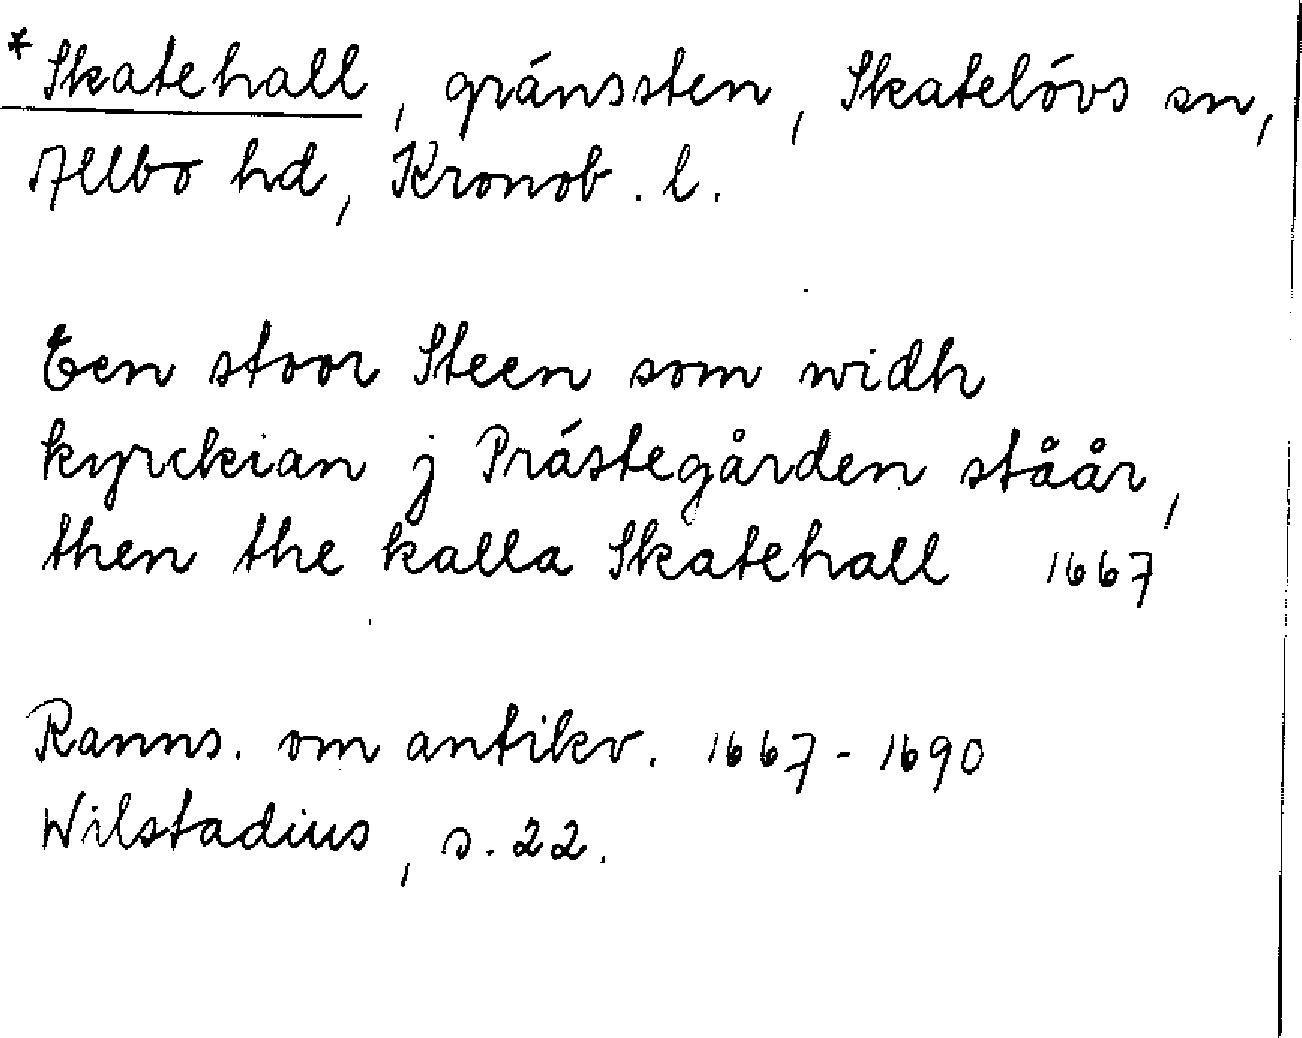 *Skatehall, gränssten, Skatelövs sn,
Allbo hd, Kronob. l.
Een stoor Steen som widh
kyrckian j Prästegården ståår,
then the kalla Skatehall 1667
Ranns. om antikv. 1667-1690
Wilstadius, s. 22.